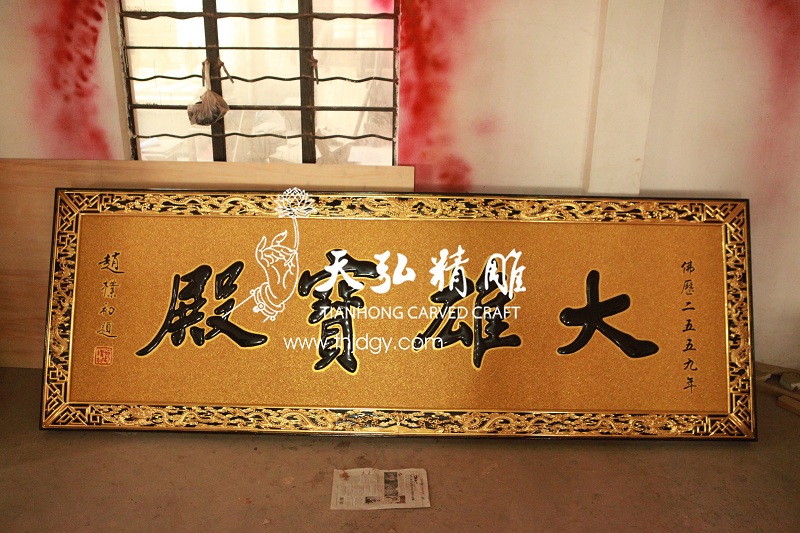 佛歷二五五九年
大雄寶殿
趙樸初題
天弘精雕
TIANHONG CARVED CRAFT